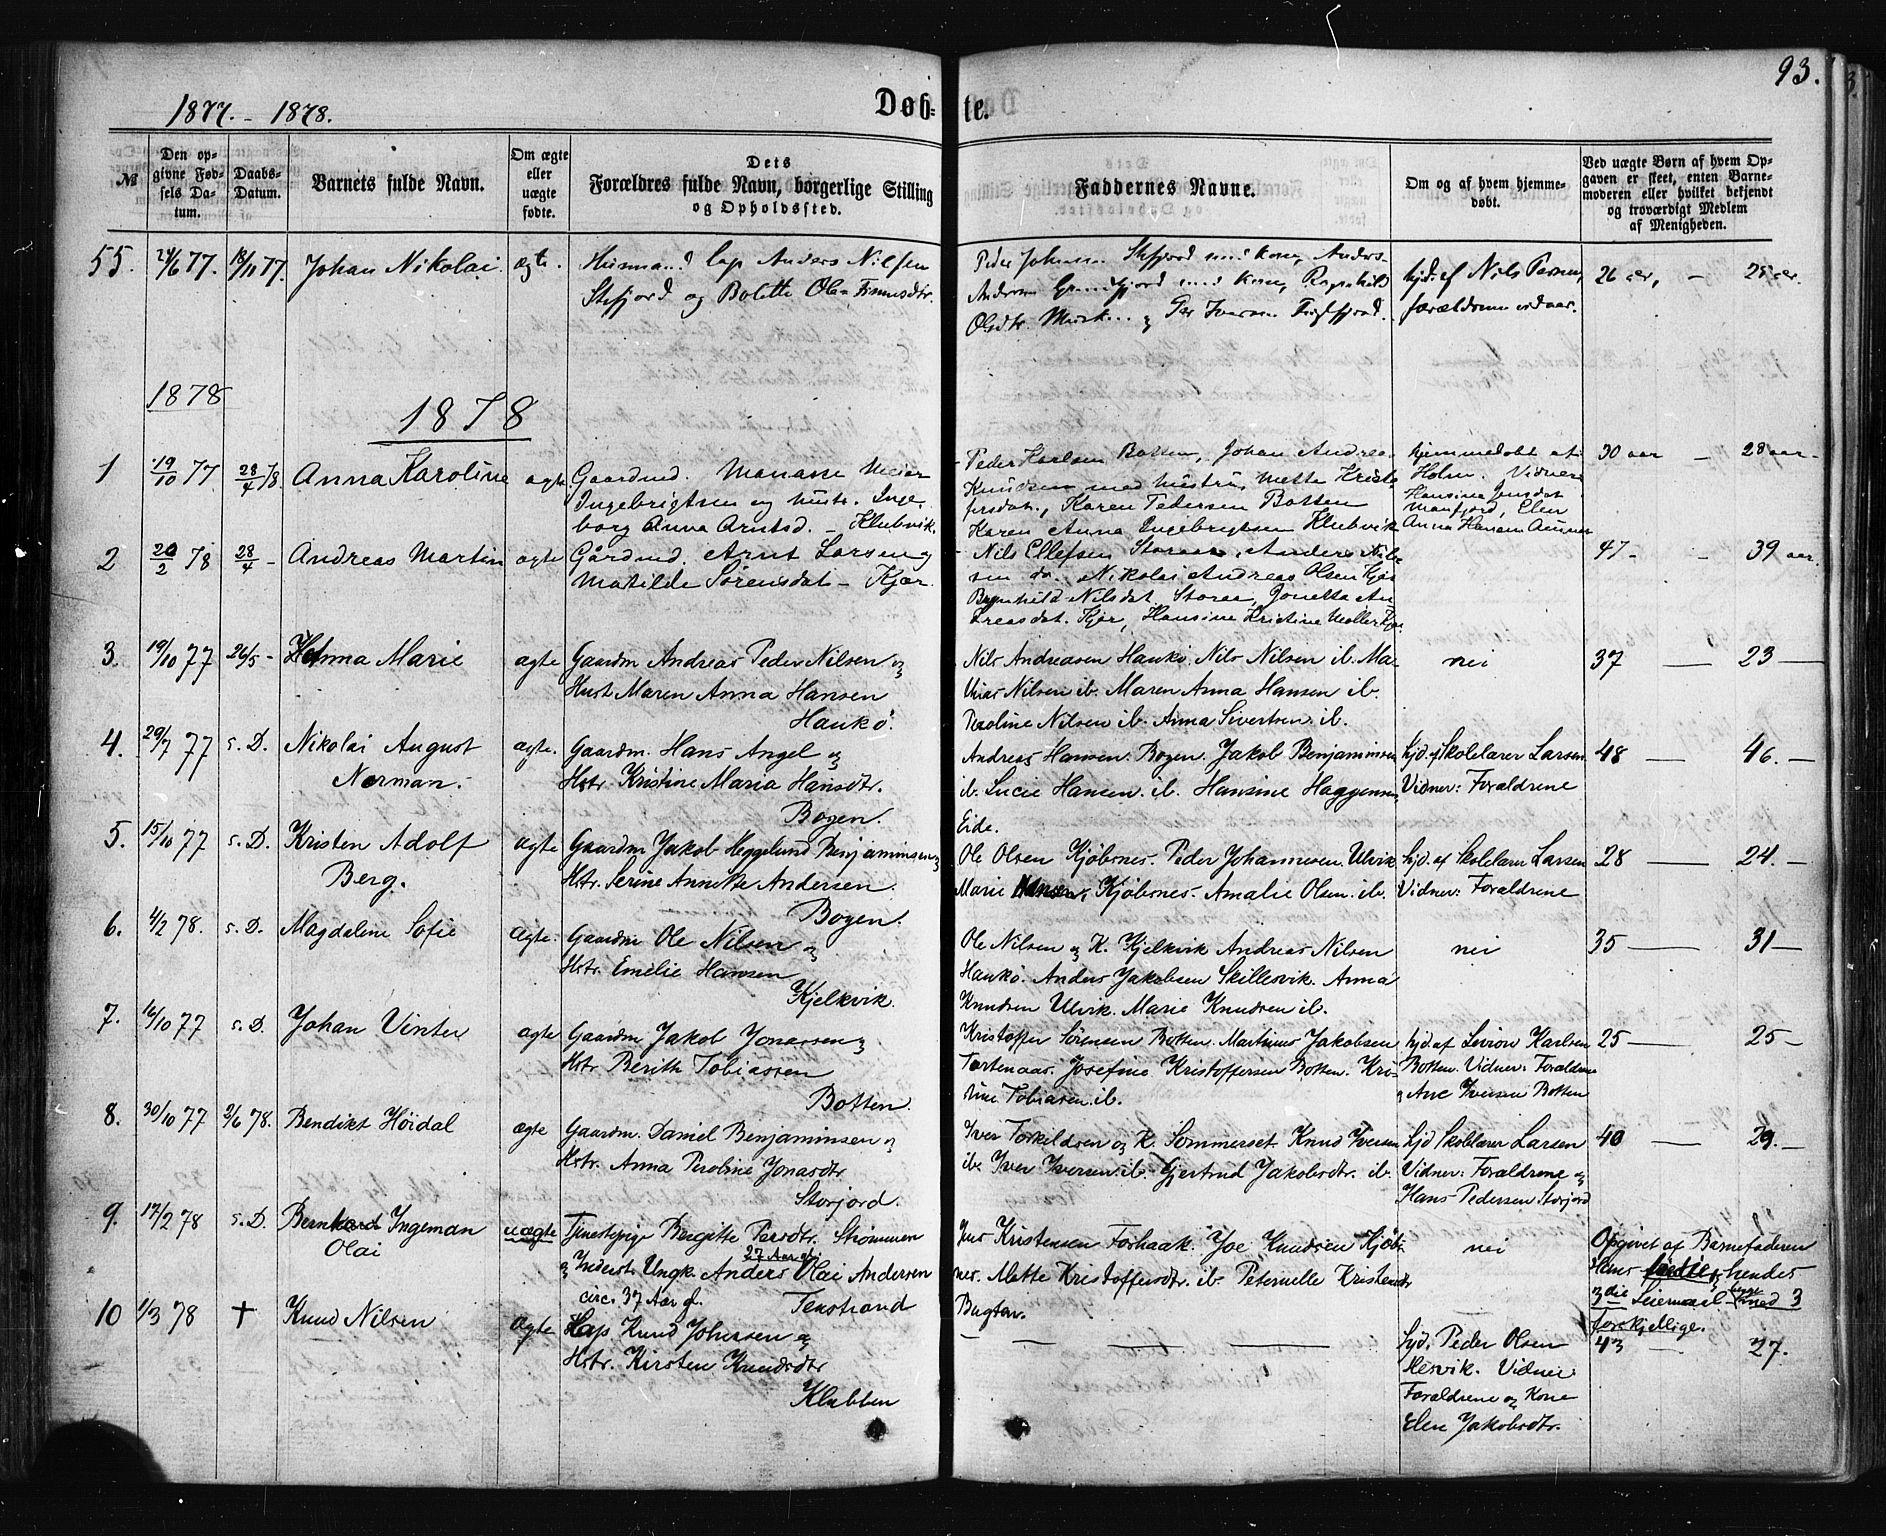 93.
1877. - 1878.
Døb-te.
№
Den opgivne Fødsels Datum.
Daabs-Datum.
Barnets fulde Navn.
Om ægte eller uægte fødte.
Dets Forældres fulde Navn, borgerlige Stilling og Opholdssted.
Faddernes Navne.
Om og af hvem hjemmedøbt.
Ved uægte Børn af hvem Opgaven er skeet, enten Barnemoderen eller hvilket bekjendt og troværdigt Medlem af Menigheden.
55. 24/6 77. 18/11 77. Johan Nikolai. ægte.
Husmand Lap Anders Nilsen
Stefjord og Bolette Ole-Finnesdtr.
Peder Johnsen Stefjord med kone, Anders
Andersen Grundfjord med kone, Ragnhild
Olsdtr. og Per Iversen
hjd. af Nils
forældrene
26 aar, - 25 aar.
1878
1878
1 19/10 77 28/4 78. Anna Karoline ægte
Gaardmd. Manasse Meier
Ingebrigtsen og hustr. Inge-
borg Anna Arntsd. - Klubvik.
- Peder Karlsen Botten, Johan Andrea
Knudsen med hustru, Mette Kristo
fersdat., Karen Pedersen Botten
Karen Anna Ingebrigtsen Klubvik
hjemmedøbt af
Holm. Vidner
Hansine Jensdat
Manfjord, Elen
Anna Hansen Aunes
30 aar - 28 aar -
2 20/2 78 28/4 - Andreas Martin ægte
Gårdmd. Arnt Larsen og
Matilde Sørensdat - Kjær.
- Nils Ellefsen Storaa, Anders Nil-
sen do. Nikolai Andreas Olsen Kjær
Brynhild Nilsdat. Storaa, Jonetta An
dreasdat. Kjær, Hansine Kristine Møller Kjær
47 - - 39 aar.
3. 19/10 77 26/5 - Hanna Marie ægte
Gaardm Andreas Peder Nilsen og
Hust Maren Anna Hansen
Haukø.
Nils Andreasen Haukø. Nils Nilsen ib. Ma-
thias Nilsen ib. Maren Anna Hansen ib.
Paoline Nilsen ib. Anna Sivertsen. ib.
nei
37 - 23 -
4. 29/7 77 s. D. Nikolai August
Norman. ægte.
Gaardm. Hans Angel og
Hstr. Kristine Maria Hansdtr.
Bogen.
Andreas Hansen. Bogen. Jakob Benjaminsen
ib. Lucie Hansen. ib. Hansine Haggensen,
Eide.
hjd. af Skolelærer Larsen
Vidner: Forældrene
48 - 46. -
5. 15/10 77 s. D. Kristen Adolf
Berg. ægte
Gaardm Jakob Heggelund Benjaminsen og
Hstr. Serine Annette Andersen.
Bogen.
Ole Olsen Kjøbsnes. Peder Johannesen. Ulvik
Marie Kjøbsnes. Amalie Olsen. ib.
hjd. af Skolelærer Larsen
Vidner: Forældrene
28 - 24. -
6. 4/2 78. s. D. Magdalene Sofie ægte.
Gaardm Ole Nilsen og
Hstr. Emelie Hansen
Kjelkvik.
Ole Nilsen og K. Kjelkvik Andreas Nilsen
Haukø. Anders Jakobsen Skillesvik. Anna
Knudsen Ulvik. Marie Knudsen ib.
nei
35 - 31 -
7. 16/10 77 s. D. Johan Vinter ægte
Gaardm Jakob Jonassen og
Hstr Berith Tobiassen
Botten.
Kristoffer Sørensen Botten. Martinus Jakobsen
Tortenaas. Josefine Kristoffersen Botten. Kri-
stine Tobiasen ib.
hjd. af Levion Karlsen
Botten. Vidner: Forældrene
og Ane Iversen Botten
25 - 25 -
8. 30/10 77 2/6 78. Bendikt Høidal ægte
Gaardm. Daniel Benjaminsen og
Hstr. Anna Peroline Jonasdtr.
Storjord.
Iver Torkildsen og K. Sommerset. Knud Iversen
ib. Iver Iversen. ib. Gjertrud Jakobsdtr. ib.
hjd Skolelærer Larsen
Vidner: Forældrene og
Hans Pedersen Storjord
40 - 29. -
9. 17/2 78 s. D. Bernhard Ingeman
Olai uægte
Tjenestepige Bergitte Persdtr. Strømmen
27 Aar gl.
og Inderst Ungk. Anders Olai Andersen
circ. 37 Aar gl. Tenstrand
Jens Kristensen Forhaak. Joe Knudsen Kjøbs-
nes. Mette Kristoffersdtr. ib. Peternelle Kristensdtr
Bugten.
nei
Opgivet af Barnefaderen
Hans hendes
3die Leiermaal med 3
forskjellige.
10 1/3 78 † Knud Nilsen ægte
Lap Knud Johnsen og
Hstr. Kirsten Knudsdtr
Klubben
hjd. Peder Olsen
Hesvik. Vidner
Forældrene og Kone
Elen Jakobsdtr.
43 - 27.